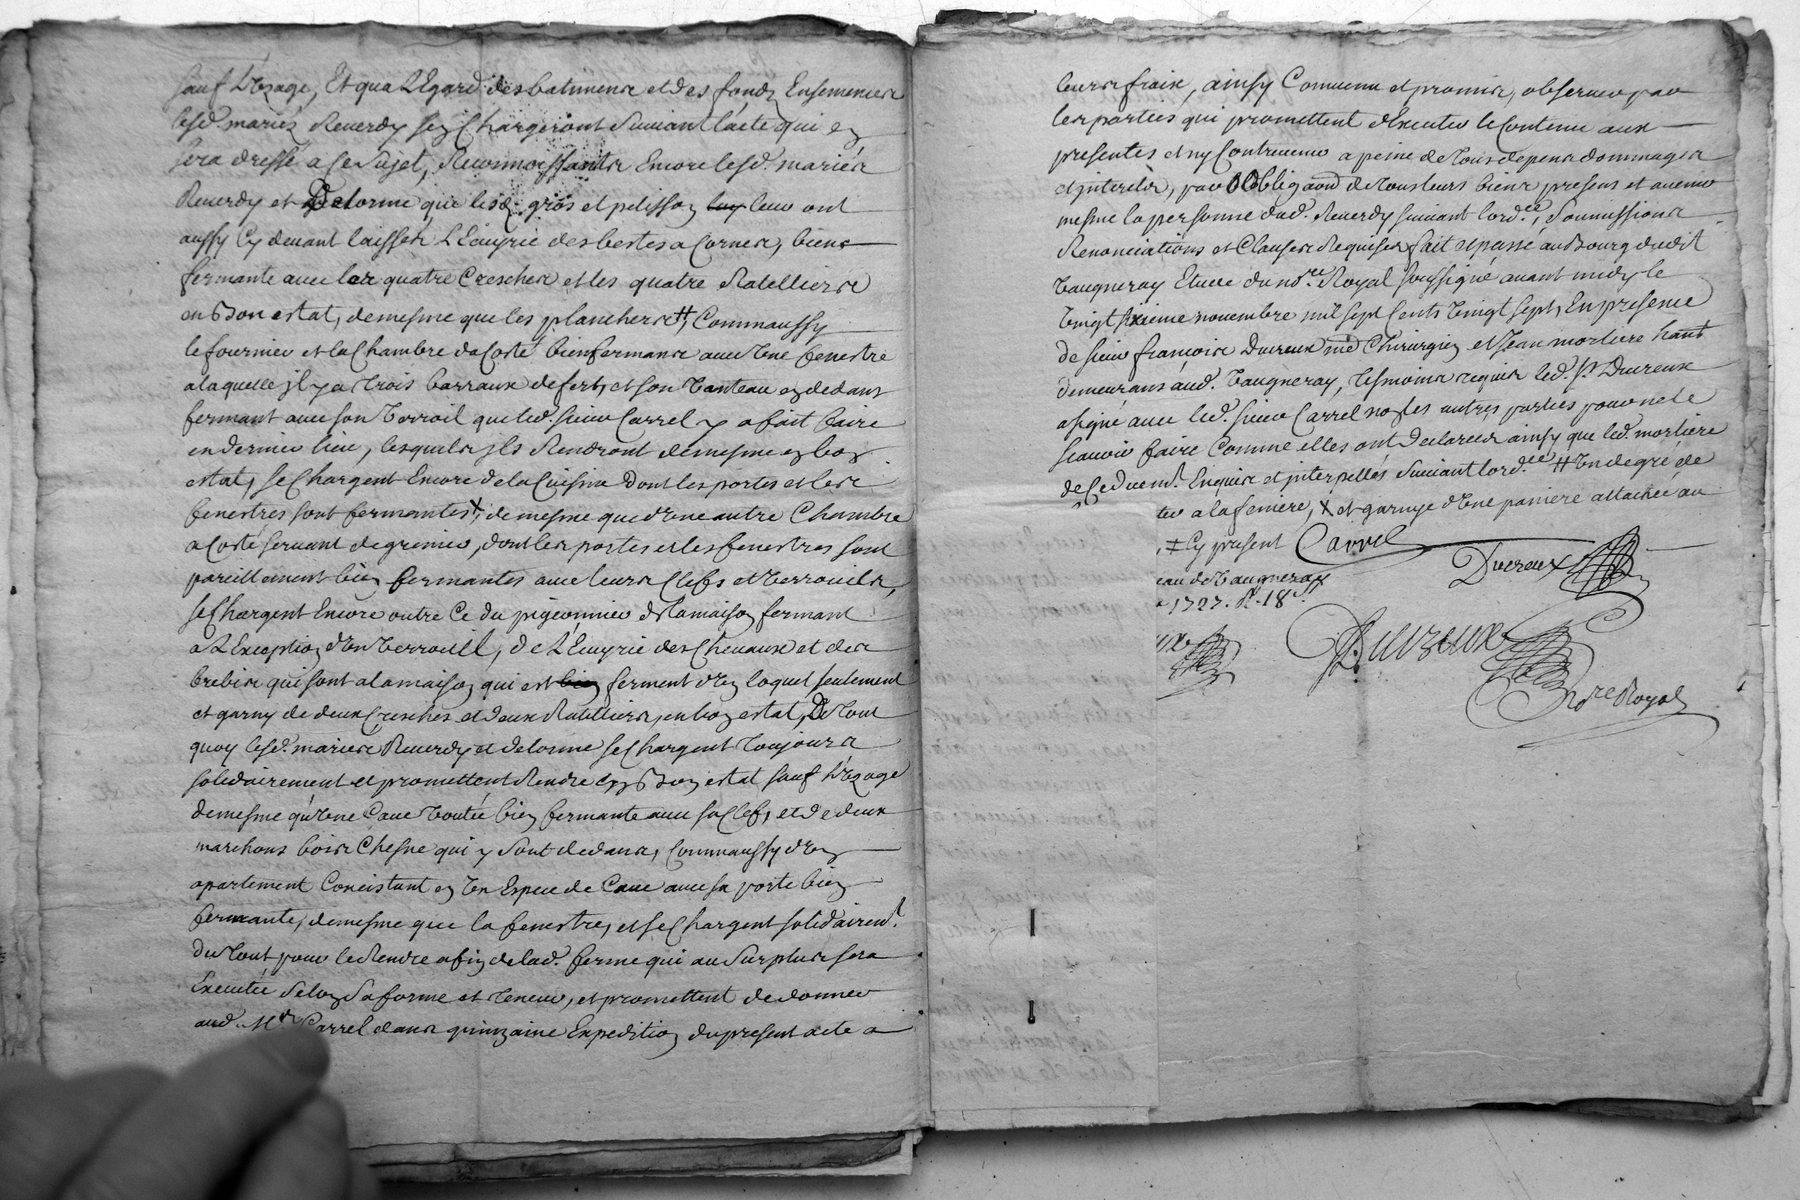 sauf l'uzage, Et qua l'Egard des batimens et des fonds Ensemencés
lesd. mariéz Reverdy sen Chargeront Suivant l'acte qui en
sera dressé a ce Sujet, Reconnoissants Encore lesd. mariés
Reverdy et Delorme que lesd. gros et pelisson luy leur ont
aussy Cy devant laissés l'Ecuyrie des bestes a Cornes, biens
fermante avec les quatre Cresches et les quatre Ratelliers
en Bon estat, de mesme que les planchers #, Comm'aussy
le fournier et la Chambre da Costé bien fermans avec Une fenestre
a laquelle jl y a trois barraux de fert, et son Vanteau en dedans
fermant avec son Verroil que led. sieur Carrel y a fait faire
en dernier lieu, lesquels jls Rendront de mesme en bon
estat, se Chargent Encore de la Cuisine Dont les portes et les
fenestres sont fermantes X, de mesme que d'Une autre Chambre
a Costé servant de grenier, dont les portes et les fenestres sont
pareillement bien fermantes avec leurs Clefs et Verrouils,
se Chargent Encore outre Ce du pigeonnier de la maison fermant
a l'Exception d'Un Verrouil, de l'Ecuyrie des Chevaux et des
brebis qui sont a la maison qui est bien ferment d'Un loquet seulement
et garny de deux Cresches et deux Ratelliers, en bon estat, De tout
quoy lesd. maries Reverdy et delorme se Chargent toujours
solidairement et promettent Rendre en Bon estat sauf l'Uzage
de mesme qu'Une Cave Voutée bien fermante avec sa Clef, et de deux
marchons bois Chesne qui y sont dedans, Comm'aussy d'Un
apartement Concistant en Un Espece de Cave avec sa porte bien
fermante, de mesme que la fenestre, et se Chargent solidairemt.
du tout pour le Rendre a fin de lad. ferme qui au Surplus sera
Executée Selon Sa forme et teneur, et promettent de donner
aud. Mr. Carrel dans quinzaine Expedition du present acte a
leurs fraix, ainsy Convenu et promis, observer par
les parties qui promettent d'Executer le Contenu aux
presentes et ny Contrevenir a peine de tous depens dommages
et jnterets, par Obligaon de tous leurs biens presens et avenir
mesme la personne dud. Reverdy suivant l'ordce., Soumissions
Renonciations et Clauses Requises fait et passé au Bourg dudit
Vaugneray Etude du nore. Royal soussigné avant midy le
Vingt sixieme novembre mil sept Cents Vingt sept, En presence
de sieur françois Ducreux me Chirurgien et Jean morliere hant
demeurans aud. Vaugneray, tesmoins requis led. sr Ducreux
a signé avec led. sieur Carrel non les autres parties pour ne le
scavoir faire Comme elles ont declarées ainsy que led. morliere
de Ce duemt. Enquis et jnterpellés Suivant l'ordce. # Un degré de
ter a la feniere, X et garnye d'Une paniere attachée au
, ≠ Cy present Carrel
Ducreux
eau de Vaugneray
1727. R. 18 s
ux
Ducreux
Nore Royal